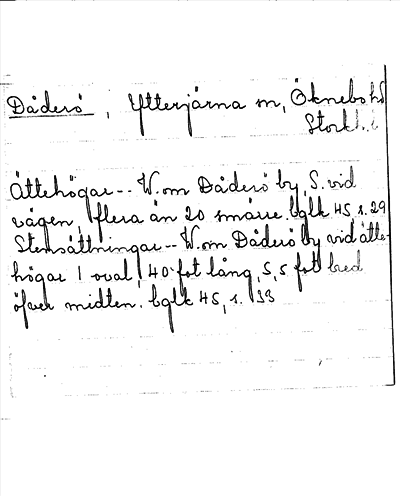 Dåderö, Ytterjärna sn, Öknebo hd
Stockh. l
Ättehögar -- W. om Dåderö by, S. vid
vägen, flera än 20 smärre. bglk 45 s. 29
Stensättningar -- W. om Dåderö by vid ätte-
högar 1 oval, 40 fot lång, 5,5 fot bred
öfver midten. bglk 45, s. 33